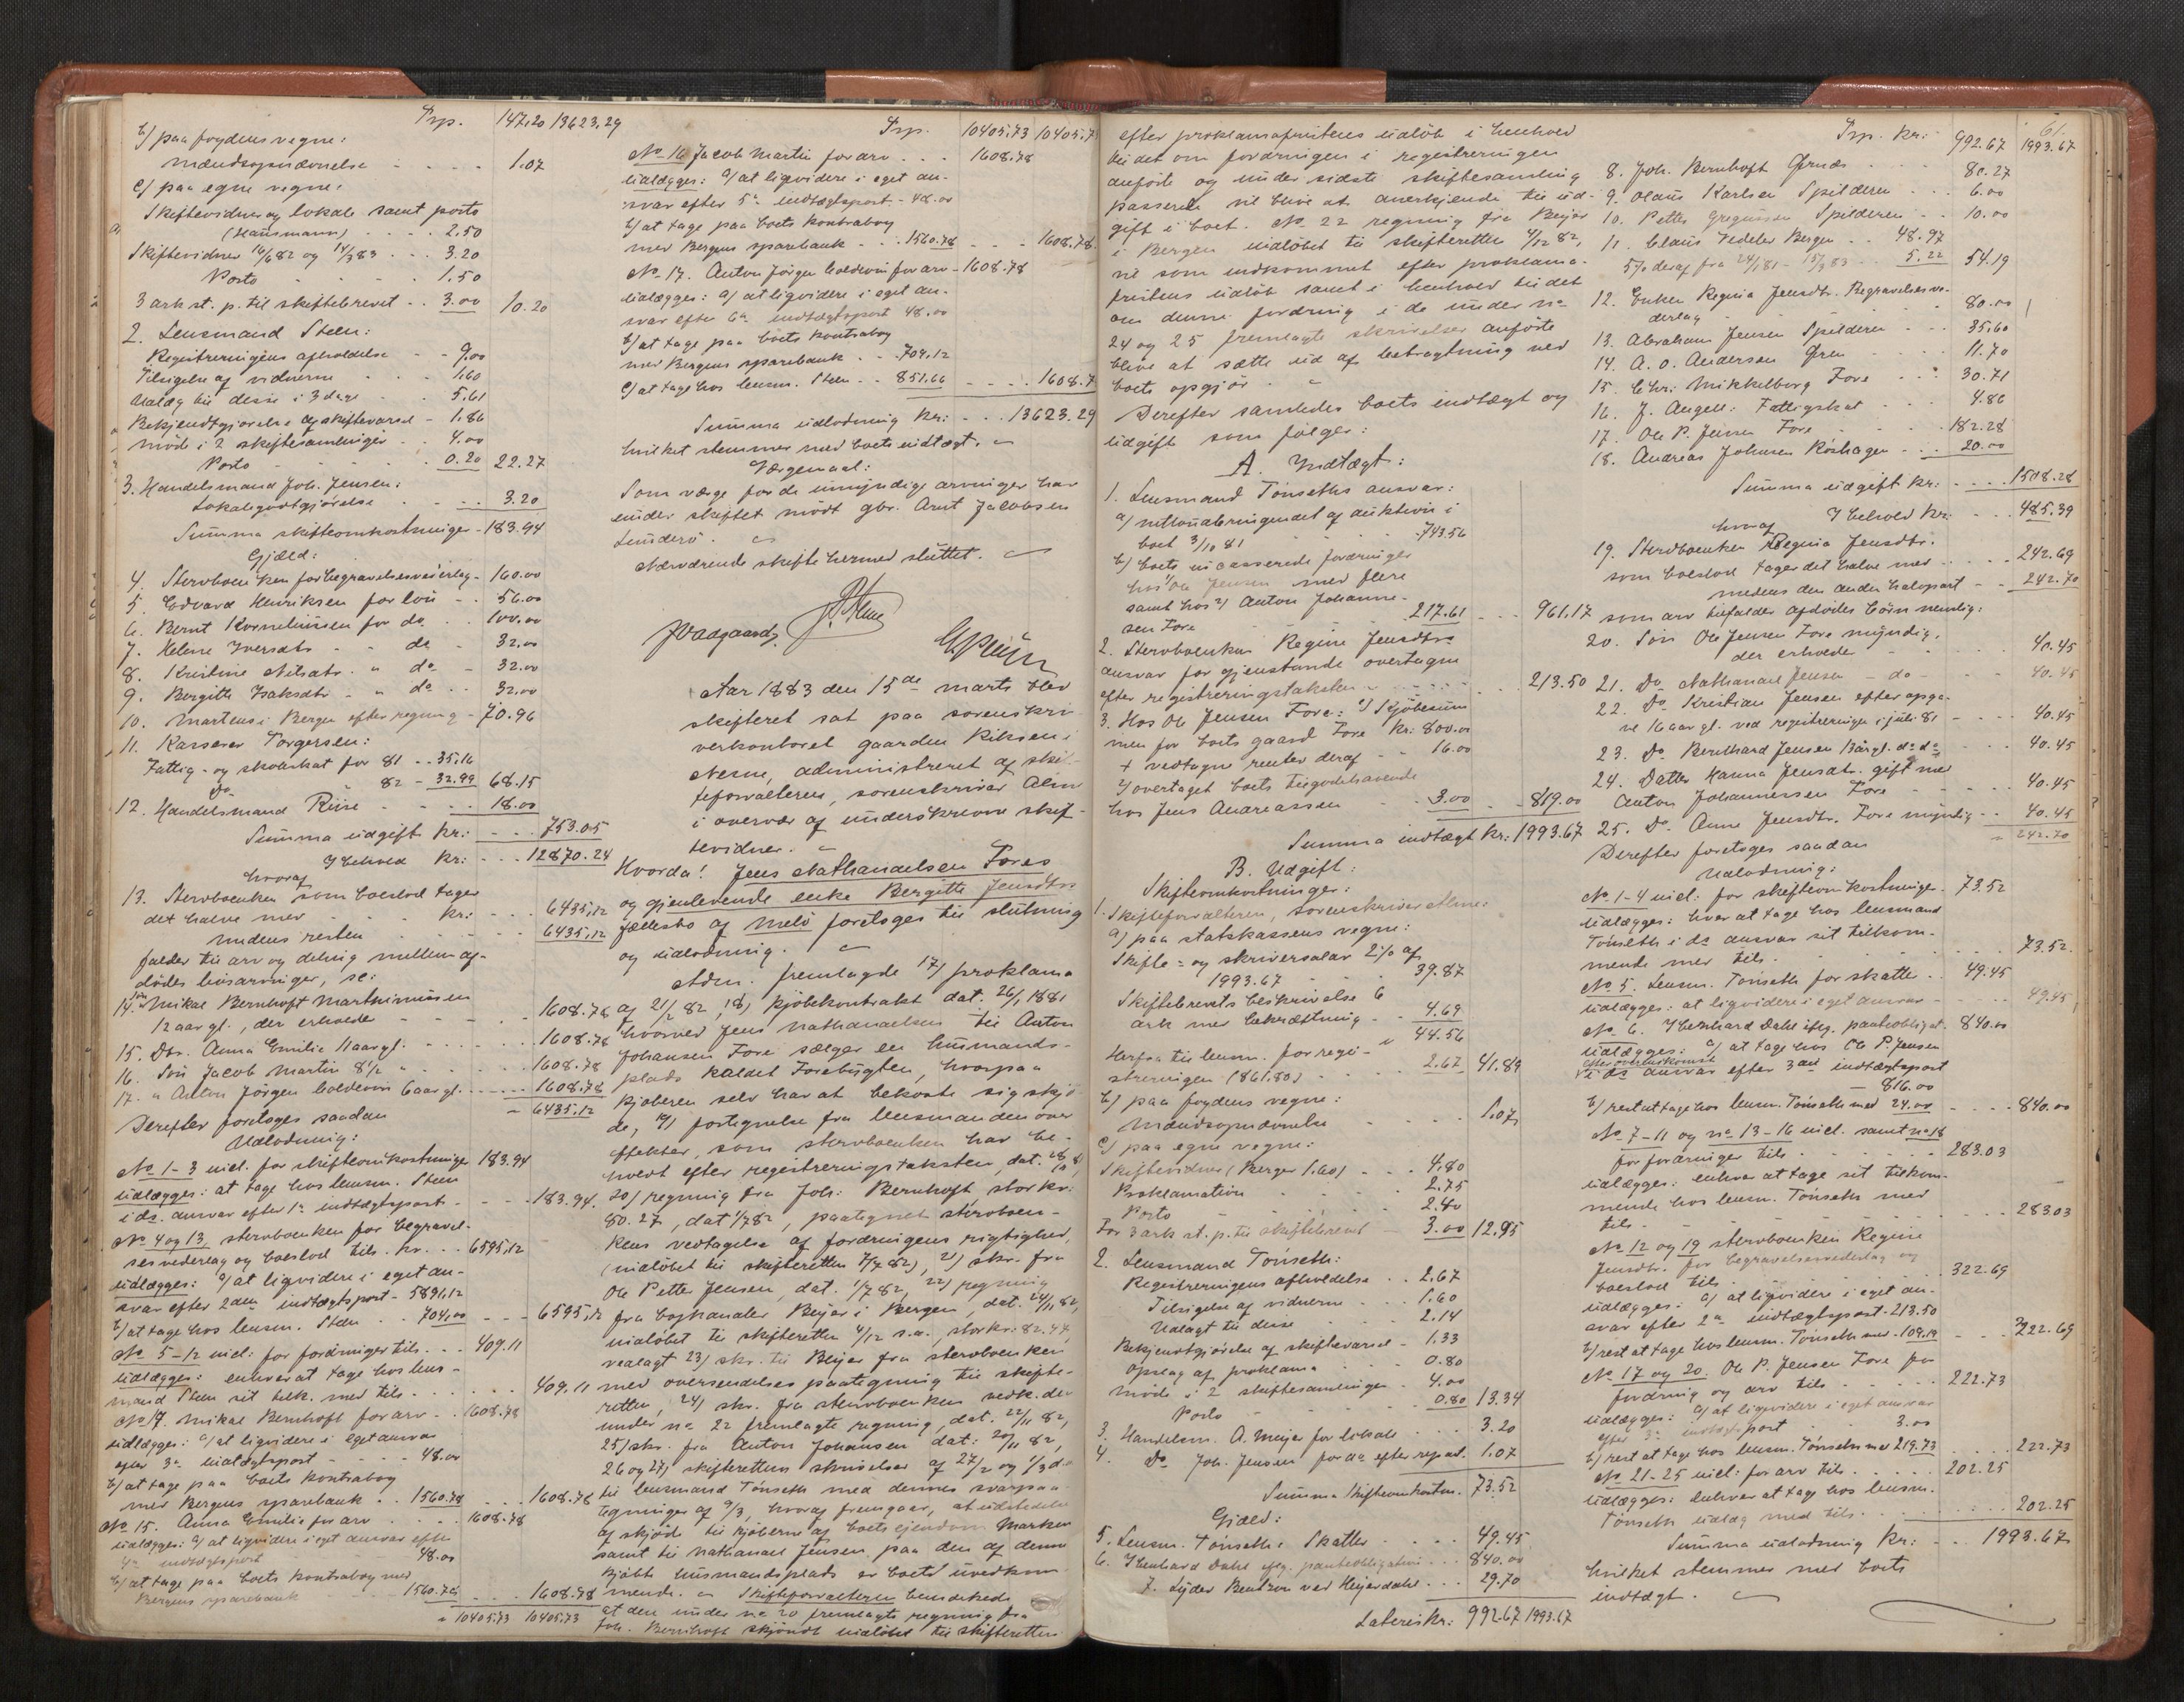 Trp. 147,20 13623,29
b/ paa fogdens vegne:
mændsopnævnelse - - - 1.07
c/ paa egne vegne:
Skiftevidner og lokale samt porto
(Hausmann) - - - 2.50
Skiftevidner 16/6 82 og 14/3 83 - - - 3.20
Porto - - - 1.50
3 ark st. p. til skiftebrevet - - 3.00 10.20
2. Lensmand Steen:
Registreringens afholdelse - - 9.00
Tilsigelse af vidnerne - - 1.60
Udlæg til disse i 3 dage - - 5.61
Bekjendtgjørelse af skiftevarsel - 1.86
Møde i 2 skiftesamlinger - - 4.00
Porto - - - 0.20 22.27
3. Handelsmand Joh. Jensen:
Lokalegodtgjørelse - - - 3.20
Summa skifteomkostninger - 183.94
Gjæld:
4. Stervboenken for begravelsesvederlag - 160.00
5. Edvard Henriksen for løn - - 56.00
6. Bernt Korneliussen for do - - 100.00
7. Helene Iversdtr - " do - 32.00
8. Kristine Nilsdtr. " do - 32.00
9. Bergitte Isaksdtr - " do - - 32.00
10. Martens i Bergen efter regning - 70.96
11. Kasserer Torgersen:
Fattig- og skoleskat for 81 - - 35,16
Do 82 - 32.99 68.15
12. Handelsmand Riise - - - 18.00
Summa udgift kr: - - - 753.05
I behold kr: - - - 12870.24
hvoraf
13. Stervboenken som boeslod tager
det halve med - - - kr: - - - 6435,12
medens resten - - - 6435,12
falder til arv og deling mellem af-
dødes livsarvinger, se:
14. Søn Mikal Bernhoft Martinussen
12 aar gl., der erholder - - - 1608.78
15. Dtr. Anna Emilie 11 aar gl. - - - 1608.78
16. Søn Jacob Martin 8½ " - - - 1608.78
17. " Anton Jörgen Coldevin 6 aar gl. - - - 1608.78
- 6435,12
Derefter foretoges saadan
Udlodning:
No 1-3 incl. for skifteomkostninger 183.94
udlægges: at tage hos lensm. Steen
i ds. ansvar efter 1ste indtægtspost - - - 183.94.
No 4 og 13, stervboenken for begravel-
sesvederlag og boeslod tils. kr. - - - 6595,12
udlægges: a/ at liqvidere i eget an-
svar efter 2den indtægtspost - 5891,12
b/ at tage hos lensm. Steen - - 704,00 - - - 6595,12
No 5-12 incl: for fordringer tils. - - - 409.11
udlægges: enhver at tage hos lens-
mand Steen sit tilk. med tils - - - 409.11
No 14. Mikal Bernhoft for arv - - 1608.78
udlægges: a/ at liqvidere i eget ansvar
efter 3die indtægtspost - - - 48.00
b/ at tage paa boets kontrabog
med Bergens sparebank - - 1560.78 - - - 1608.78
No 15. Anna Emilie for arv - - - 1608.78
udlægges: a/ at liqvidere i eget ansvar efter
4de indtægtspost - 48.00
b/ at tage paa boets kontrabog med
Bergens sparebank - - - 1560.78 - - - 1608.78
" 10405,73 10405,73
Trp. 10405,73 10405,7
No 16 Jacob Martin for arv - - - 1608.78
udlægges: a/ at liqvidere i eget an-
svar efter 5te indtægtspost - 48.00
b/ at tage paa boets kontrabog
med Bergens sparebank - - - 1560.78 - - - 1608.78.
No 17. Anton Jörgen Coldevin for arv - 1608.78
udlægges: a/ at liqvidere i eget an-
svar efter 6te indtægtspost 48.00
b/ at tage paa boets kontrabog
med Bergens sparebank - - - 709,12
c/ at tage hos lensm. Steen - - 851.66 - - - 1608.7
Summa udlodning kr: - - - 13623.29
hvilket stemmer med boets indtægt.
Værgemaal:
Som værge for de umyndige arvinger har
under skiftet mødt gbr. Arnt Jacobsen
Sunderö.
Nærværende skifte hermed sluttet.
Aar 1883 den 15de marts blev
skifteret sat paa sorenskri-
verkontoret gaarden Riksen i
Nesne, administreret af skif-
teforvalteren, sorenskriver Alme
i overvær af underskrevne skif-
tevidner.
Hvorda! Jens Nathanaelsen Fores
og gjenlevende enke Bergitte Jensdtrs
fællesbo af Melö foretoges til slutning
og udlodning.
Adm. fremlagde 17/ proklama
af 21/2 82, 18/ kjöbekontrakt dat. 26/1 1881
hvorved Jens Nathanaelsen til Anton
Johansen Fore sælger en husmands-
plads kaldet Forebugten, hvorpaa
kjöberen selv har at bekoste sig skjö-
de, 19/ fortegnelse fra lensmanden over
effekter, som stervboenken har be-
hvedt efter registreringstaksten, dat. 28/10 81
20/ regning fra Joh: Bernhoft, stor kr:
80.27, dat 1/7 82, paategnet stervboen-
kens vedtagelse af fordringens rigtighed,
(indløbet til skifteretten 7/7 82), 21/ skr. fra
Ole Petter Jensen, dat. 1/7 82, 22/ regning
fra boghandler Beijer i Bergen, dat. 24/11 82,
indløbet til skifteretten 4/12 s.a., stor kr: 82.44,
vedlagt 23/ skr. til Beijer fra stervboenken
med oversendelsespaategning til skifte-
retten, 24/ skr. fra stervboenken vedk. den
under no 22 fremlagte regning, dat. 22/11 82,
25/ skr. fra Anton Johansen dat: 20/11 82,
26 og 27/ skifterettens skrivelser af 27/2 og 1/3 d.a.
til lensmand Tönseth med dennes svarpaa-
tegninger af 9/3, hvoraf fremgaar, at udstedelse
af skjöde til kjöberne af boets eiendom Marken
samt til Nathanael Jensen paa den af denne
kjöbte husmandsplads er boets uvedkom-
mende. Skifteforvalteren bemærkede
at den under no 20 fremlagte regning fra
Joh. Bernhoft skjöndt indløbet til skifteretten
61.
efter proklamafristens udløb i henhold
til det om fordringen i registreringen
anførte og under sidste skiftesamling
passerede vil blive at anerkjende til ud-
gift i boet. No 22 regning fra Beijer
i Bergen indløbet til skifteretten 4/12 82,
vil som indkommet efter proklama-
fristens udløb samt i henhold til det
om denne fordring i de under no
24 og 25 fremlagte skrivelser anførte
blive at sætte ud af betragtning ved
boets opgjør.
Derefter samledes boets indtægt og
udgift som følger:
A. Indtægt:
1. Lensmand Tönseths ansvar:
a/ nettoudbringendet af auktion i
boet 3/10 81 - 743.56
b/ boets incasserede fordringer
hos 1/ Ole Jensen med flere
samt hos 2/ Anton Johanne-
sen Fore 217.61 - - - 961.17
2. Stervboenken Regine Jensdtrs
ansvar for gjenstande overtagne
efter registreringstaksten - - - 213.50
3. Hos Ole Jensen Fore: 1/ Kjöbesum
men for boets gaard Fore kr: 800.00
+ vedtagne renter deraf - - 16.00
2/ overtaget boets tilgodehavende
hos Jens Andreassen - - 3.00 - - 819.00
Summa indtægt kr: 1993.67
B. Udgift:
Skifteomkostninger:
1. Skifteforvalteren, sorenskriver Alme:
a/ paa statskassens vegne:
Skifte- og skriversalær 2% af
1993.67 39.87
Skiftebrevets beskrivelse 6
ark med bekræftning - - 4.69
" 44.56
Herfra til lensm. for regi-
streringen (861.80) - - - 2.67 41.89
b/ paa fogdens vegne:
Mændsopnævnelse - - - 1.07
c/ paa egne vegne:
Skiftevidner (Berger 1.60) - - - 4.80
Proklamation - - - 2.75
Porto - - - 2.40
For 3 ark st. p. til skiftebrevet - - 3.00 12.95
2. Lensmand Tönseth:
Registreringens afholdelse - - 2.67
Tilsigelse af vidnerne - - - 1.60
Udlagt til disse - - - 2.14
Bekjendtgjørelse af skiftevarsel - 1.33
Opslag af proklama - - - 0.80
Møde i 2 skiftesamlinger - 4.00
Porto - - - 0.80 13.34
3. Handelsm. A. Meijer for lokale - - - 3.20
4. Do Joh. Jensen for do efter repart. 1.07
Summa skifteomkostn. 73.52
Gjæld:
5. Lensm. Tönseth: Skatter - - - 49.45
6. Iberhard Dahl iflg. panteobligation - - - 840.00
7. Lyder Bentzon ved Heijerdahl - - - 29.70
Lateris kr: 992.67 1993.67
Trp. kr: 992.67 1993.67
8. Joh. Bernhoft Grnæs - - - 80.27
9. Olaus Karlsen Spilderen - - - 6.00
10. Petter Gregussen Spilderen - - 10.00
11. Claus Vedeler Bergen - - 48.97
5% deraf fra 24/1 81 - 15/3 83 - - 5.22 54.19
12. Enken Regina Jensdtr. Begravelsesve-
derlag - - - 80.00
13. Abraham Jensen Spilderen - - - 35.60
14. A. O. Andersen Gren - - - 11.70
15. Chr: Mikkelborg Fore - - - 30.71
16. J. Angell: Fattigskat - - - 4.86
17. Ole P. Jensen Fore - - - 182.28
18. Andreas Johnsen Röshagen - - - 20.00
Summa udgift kr: - - - 1508.28
I behold kr: - - - 485.39
hvoraf
19. Stervboenken Regina Jensdtr.
som boeslod tager det halve med - - - 242.69
medens den anden halvpart - - 242.70
som arv tilfalder afdødes börn nemlig:
20. Søn Ole Jensen Fore myndig,
der erholder - - - 40.45
21. Do Nathanael Jensen - do - 40.45
22. Do Kristian Jensen efter opga-
ve 16 aar gl. ved registreringen i juli 81 - - - 40.45
23. Do Bernhard Jensen 13 aar gl. do do - - - 40.45
24. Datter Hanna Jensdtr. gift med
Anton Johannesen Fore - - - 40.45
25. Do. Anne Jensdtr. Fore myndig - - 40.45
" 242.70
Derefter foretoges saadan
Udlodning:
No 1-4 incl: for skifteomkostninger - 73.52
udlægges: hver at tage hos lensmand
Tönseth i ds ansvar sit tilkom-
mende med tils. - - - 73.52.
No 5. Lensm. Tönseth for skatter - - 49.45
udlægges: at liqvidere i eget ansvar - - - 49.45
No 6. Iberhard Dahl iflg. panteobligat. 840.00
udlægges: a/ at tage hos Ole P. Jensen
efter overenskomst
i ds ansvar efter 3die indtægtspost
- 816.00
b/ rest at tage hos lensm. Tönseth med 24.00 - - - 840.00
No 7-11 og no 13-16 incl. samt no 18
for fordringer tils - - - 283.03
udlægges: enhver at tage sit tilkom-
mende hos lensm. Tönseth med
tils. - - - 283.03
No 12 og 19 stervboenken Regine
Jensdtr. for begravelsesvederlag og
boeslod tils. - - - 322.69
udlægges: a/ at liqvidere i eget an-
svar efter 2den indtægtspost - 213.50
b/ rest at tage hos lensm. Tönseth med - 109.19 - - - 322.69
No 17 og 20. Ole P. Jensen Fore for
fordring og arv tils - - - 222.73
udlægges: a/ at liqvidere i eget ansvar
efter 3die indtægtspost - 3.00
b/ rest at tage hos lensm. Tönseth med 219.73 - - - 222.73
No 21-25 incl: for arv tils. - - - 202.25
udlægges: Enhver at tage hos lensm.
Tönseth udlæg med tils. - - - 202.25
Summa udlodning kr: - - - 1993.67
hvilket stemmer med boets
indtægt.